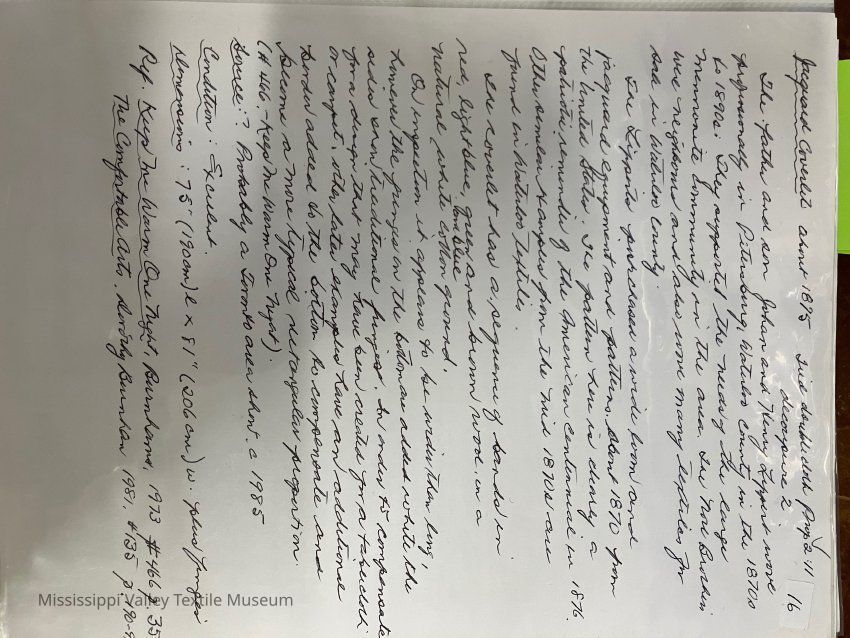 Jacquard Coverlet about 1875 - Tied doublecloth Prop 2:1
decoupure 2.
16
The father and son Johan and Henry Lippert wove
professionally in Petersburg, Waterloo County in the 1870s
to 1890s. They supported the needs of the large
Mennonite Community in the area. The Noll Brothers
were neighbours and also wove many textiles for
sale in Waterloo County.
The Lipperts purchased a wide loom and
jacquard equipment and patterns about 1870 from
the United States. The pattern here is clearly a
patriotic reminder of the American Centennial in 1876.
Other similar examples from the mid 1870s are
found in Waterloo Textiles.
The coverlet has a sequence of bands in
red, light blue, green and brown wool in a
dark blue
natural white cotton ground.
On inspection it appears to be wider than long,
however the fringe on the bottom as added while the
sides even traditional fringes. In order to compensate
for a design that may have been created for a tablecloth
or carpet, other later examples have an additional
border added to the bottom to compensate and
become a more typical rectangular proportion
(# 466 - Keep Me Warm One Night).
Source: ? Probably a Toronto area show. c 1985
Condition: Excellent.
Dimensions: 75" (190cm) l x 81" (206cm) w. plus fringes
Ref. Keep Me Warm One Night, Burnhams, 1973 # 466 p 35
The Comfortable Arts. Dorothy Burnham 1981. # 135 p. 90-9
Mississippi Valley Textile Museum